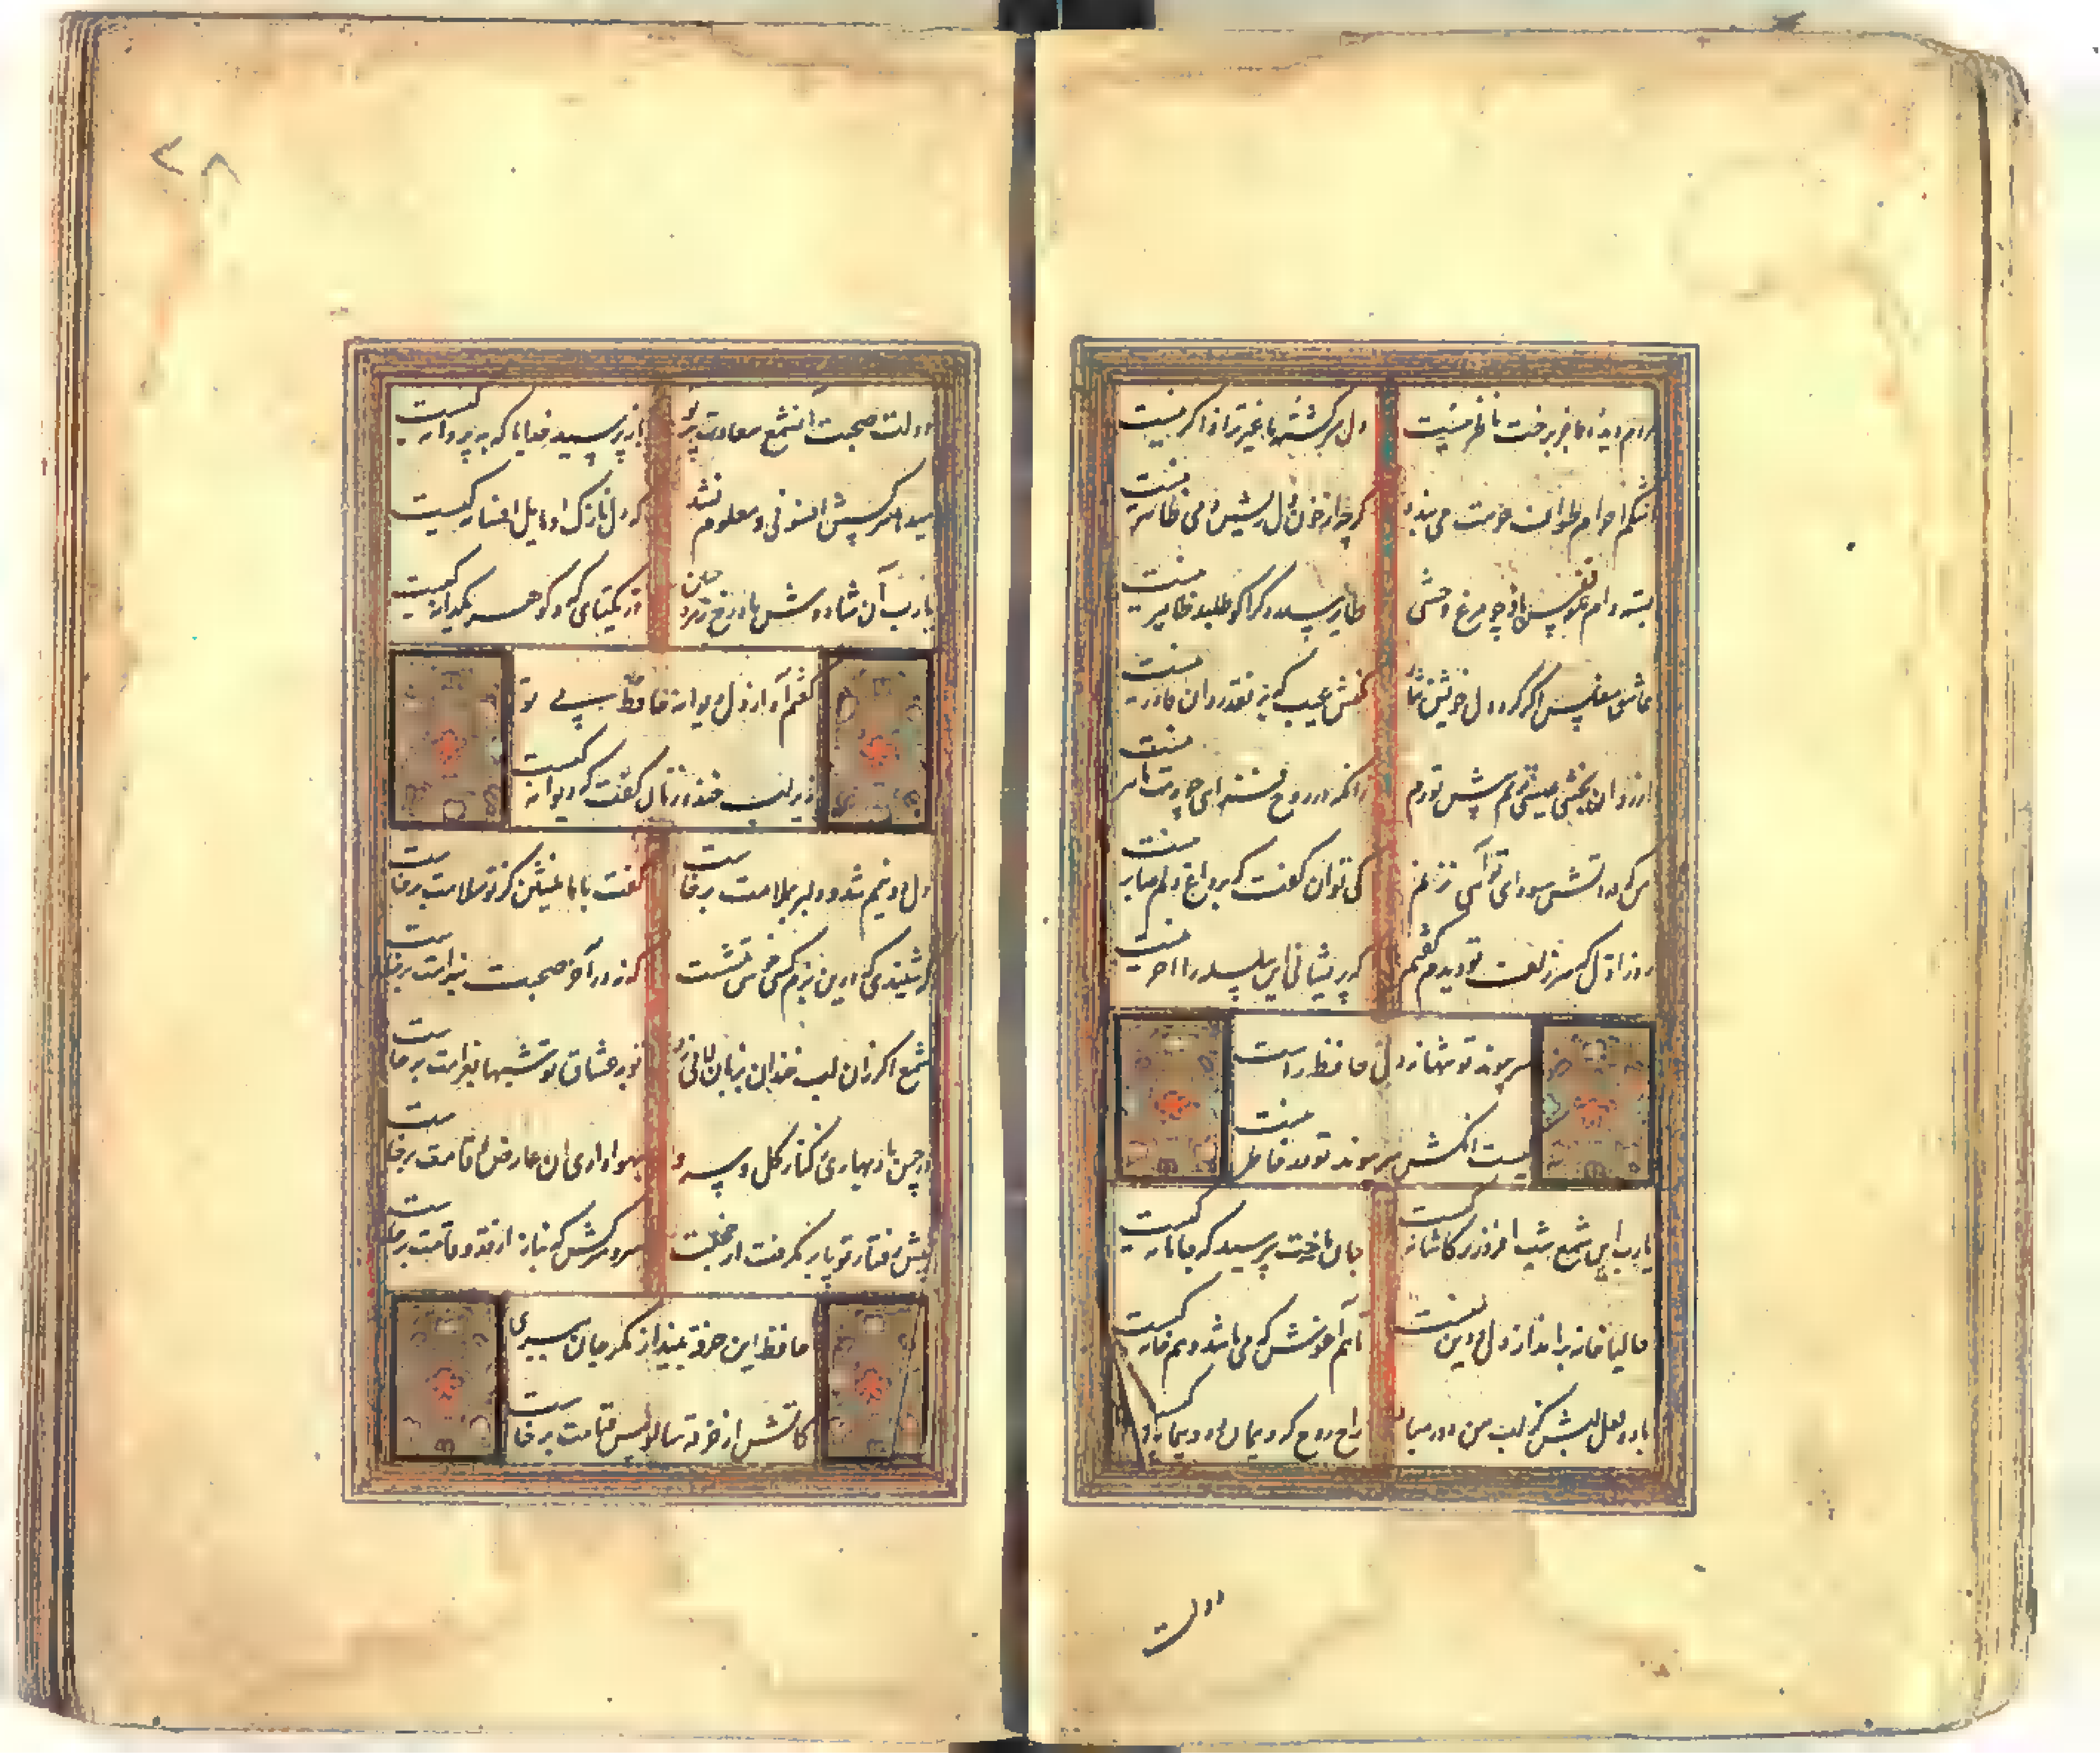 مردم دیده ما جز برخت ناظر نیست دل سرگشته ما غیر ترا ذاکر نیست
اشکم احرام طواف حرمت می بندد گرچه از خون دل ریش دمی طاهر نیست
بسته دام و قفس باد چو مرغ وحشی طایر سدره اگر در طلبت طایر نیست
عاشق مفلس اگر کرد دل خویش نثار مکنش عیب که بر نقد روان قادر نیست
از روان بخشی عیسی نزنم پیش تو دم زانکه در روح فزایی چو لبت ماهر نیست
من که در آتش سودای تو آهی نزنم کی توان گفت که بر داغ دلم صابر نیست
روز اول که سر زلف تو دیدم گفتم که پریشانی این سلسله را آخر نیست
سر پیوند تو تنها نه دل حافظ راست
کیست آنکش سر پیوند تو در خاطر نیست
یارب این شمع شب افروز ز کاشانه کیست جان ما سوخت بپرسید که جانانه کیست
حالیا خانه برانداز دل و دین منست تا هم آغوش که می باشد و هم خانه کیست
باده لعل لبش کز لب من دور مباد راح روح که و پیمان ده پیمانه کیست
دولت
۲۸
دولت صحبت آن شمع سعادت پرتو بازپرسید خدا را که به پروانه کیست
میدمد هر کسش افسونی و معلوم نشد که دل نازک او مایل افسانه کیست
یارب آن شاه وش ماه رخ زهره جبین در یکتای که و گوهر یکدانه کیست
گفتم آه از دل دیوانه حافظ بی تو
زیر لب خنده زنان گفت که دیوانه کیست
دل و دینم شد و دلبر بملامت برخاست گفت با ما منشین کز تو سلامت برخاست
که شنیدی که درین بزم دمی خوش بنشست که نه در آخر صحبت بندامت برخاست
شمع اگر زان لب خندان بزبان لافی زد نزد عشاق تو شبها بغرامت برخاست
در چمن باد بهاری ز کنار گل و سرو بهواداری آن عارض و قامت برخاست
پیش رفتار تو پا بر نگرفت از خجلت سرو سرکش که بناز از قد و قامت برخاست
حافظ این خرقه بینداز مگر جان ببری
کاتش از خرقه سالوس و کرامت برخاست